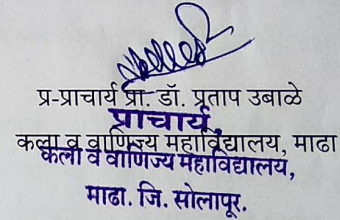 प्र-प्राचार्य प्रा. डॉ. प्रताप उबाळे
प्राचार्य,
कला व वाणिज्य महाविद्यालय, माढा
कला व वाणिज्य महाविद्यालय,
माढा. जि. सोलापूर.